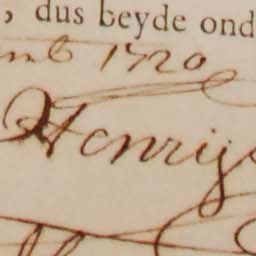 , dus beyde ond
1720
Henrig